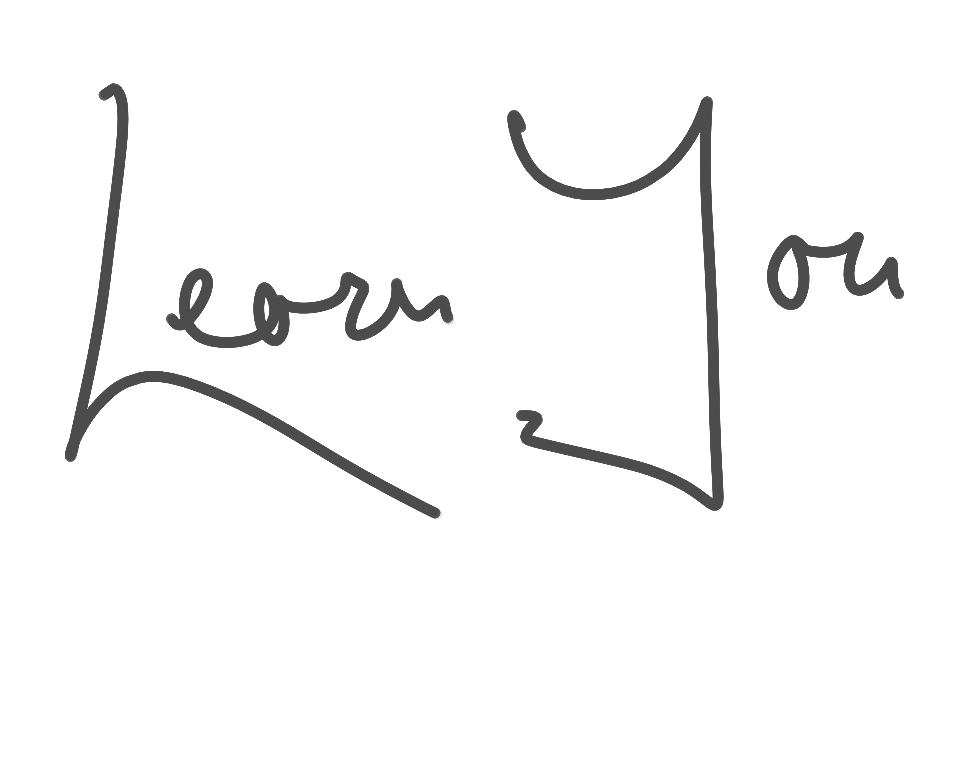 Learn You